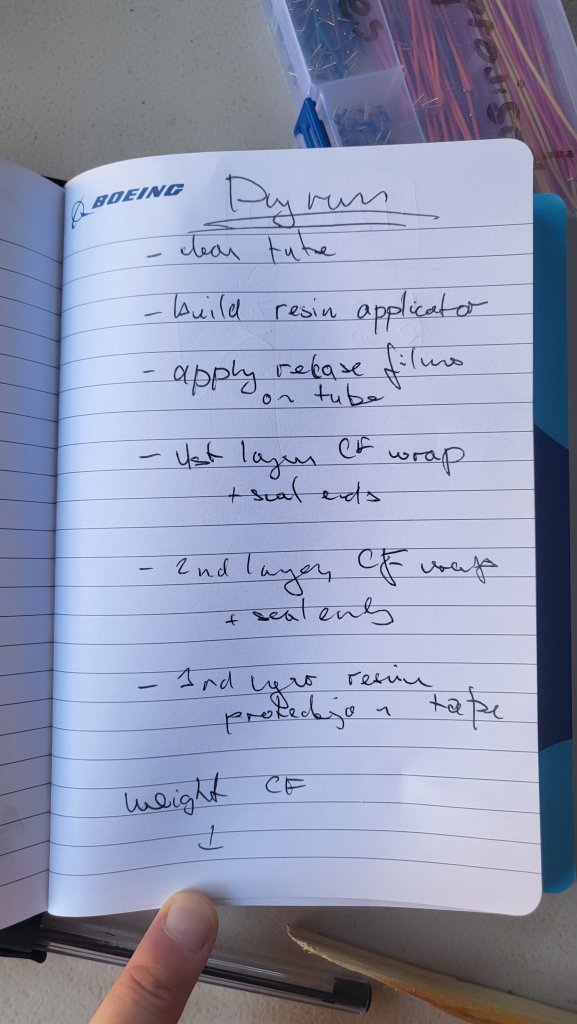 BOEING
Dry run
- clean tube
- build resin applicator
- apply release films
on tube
- 1st layer CF wrap
+ seal ends
- 2nd layer CF wrap
+ seal ends
- resin
protection tape
weight CF
↓